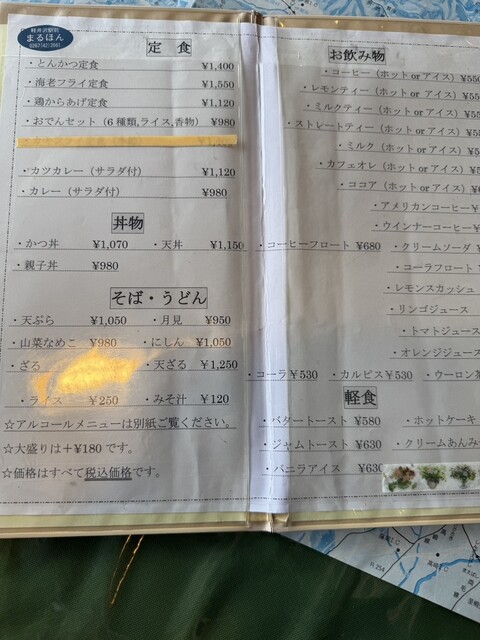 軽井沢駅前
まるほん
0267(42)2001
定 食
・とんかつ定食 ¥1,400
・海老フライ定食 ¥1,550
・鶏からあげ定食 ¥1,120
・おでんセット（6種類,ライス,香物） ¥980
・カツカレー（サラダ付） ¥1,120
・カレー（サラダ付） ¥980
丼物
・かつ丼 ¥1,070 ・天丼 ¥1,150
・親子丼 ¥980
そば・うどん
・天ぷら ¥1,050 ・月見 ¥950
・山菜なめこ ¥980 ・にしん ¥1,050
・ざる ・天ざる ¥1,250
・ライス ¥250 ・みそ汁 ¥120
☆アルコールメニューは別紙ご覧ください。
☆大盛りは＋¥180です。
☆価格はすべて税込価格です。
お飲み物
・コーヒー（ホット or アイス）
・レモンティー（ホット or アイス）
・ミルクティー（ホット or アイス）
・ストレートティー（ホット or アイス）
・ミルク（ホット or アイス）
・カフェオレ（ホット or アイス）
・ココア（ホット or アイス）
・アメリカンコーヒー
・ウインナーコーヒー
・コーヒーフロート ¥680 ・クリームソーダ
・コーラフロート
・レモンスカッシュ
・リンゴジュース
・トマトジュース
・オレンジジュース
・コーラ ¥530 ・カルピス ¥530 ・ウーロン
軽食
・バタートースト ¥580 ・ホットケーキ
・ジャムトースト ¥630 ・クリームあんみ
・バニラアイス ¥630